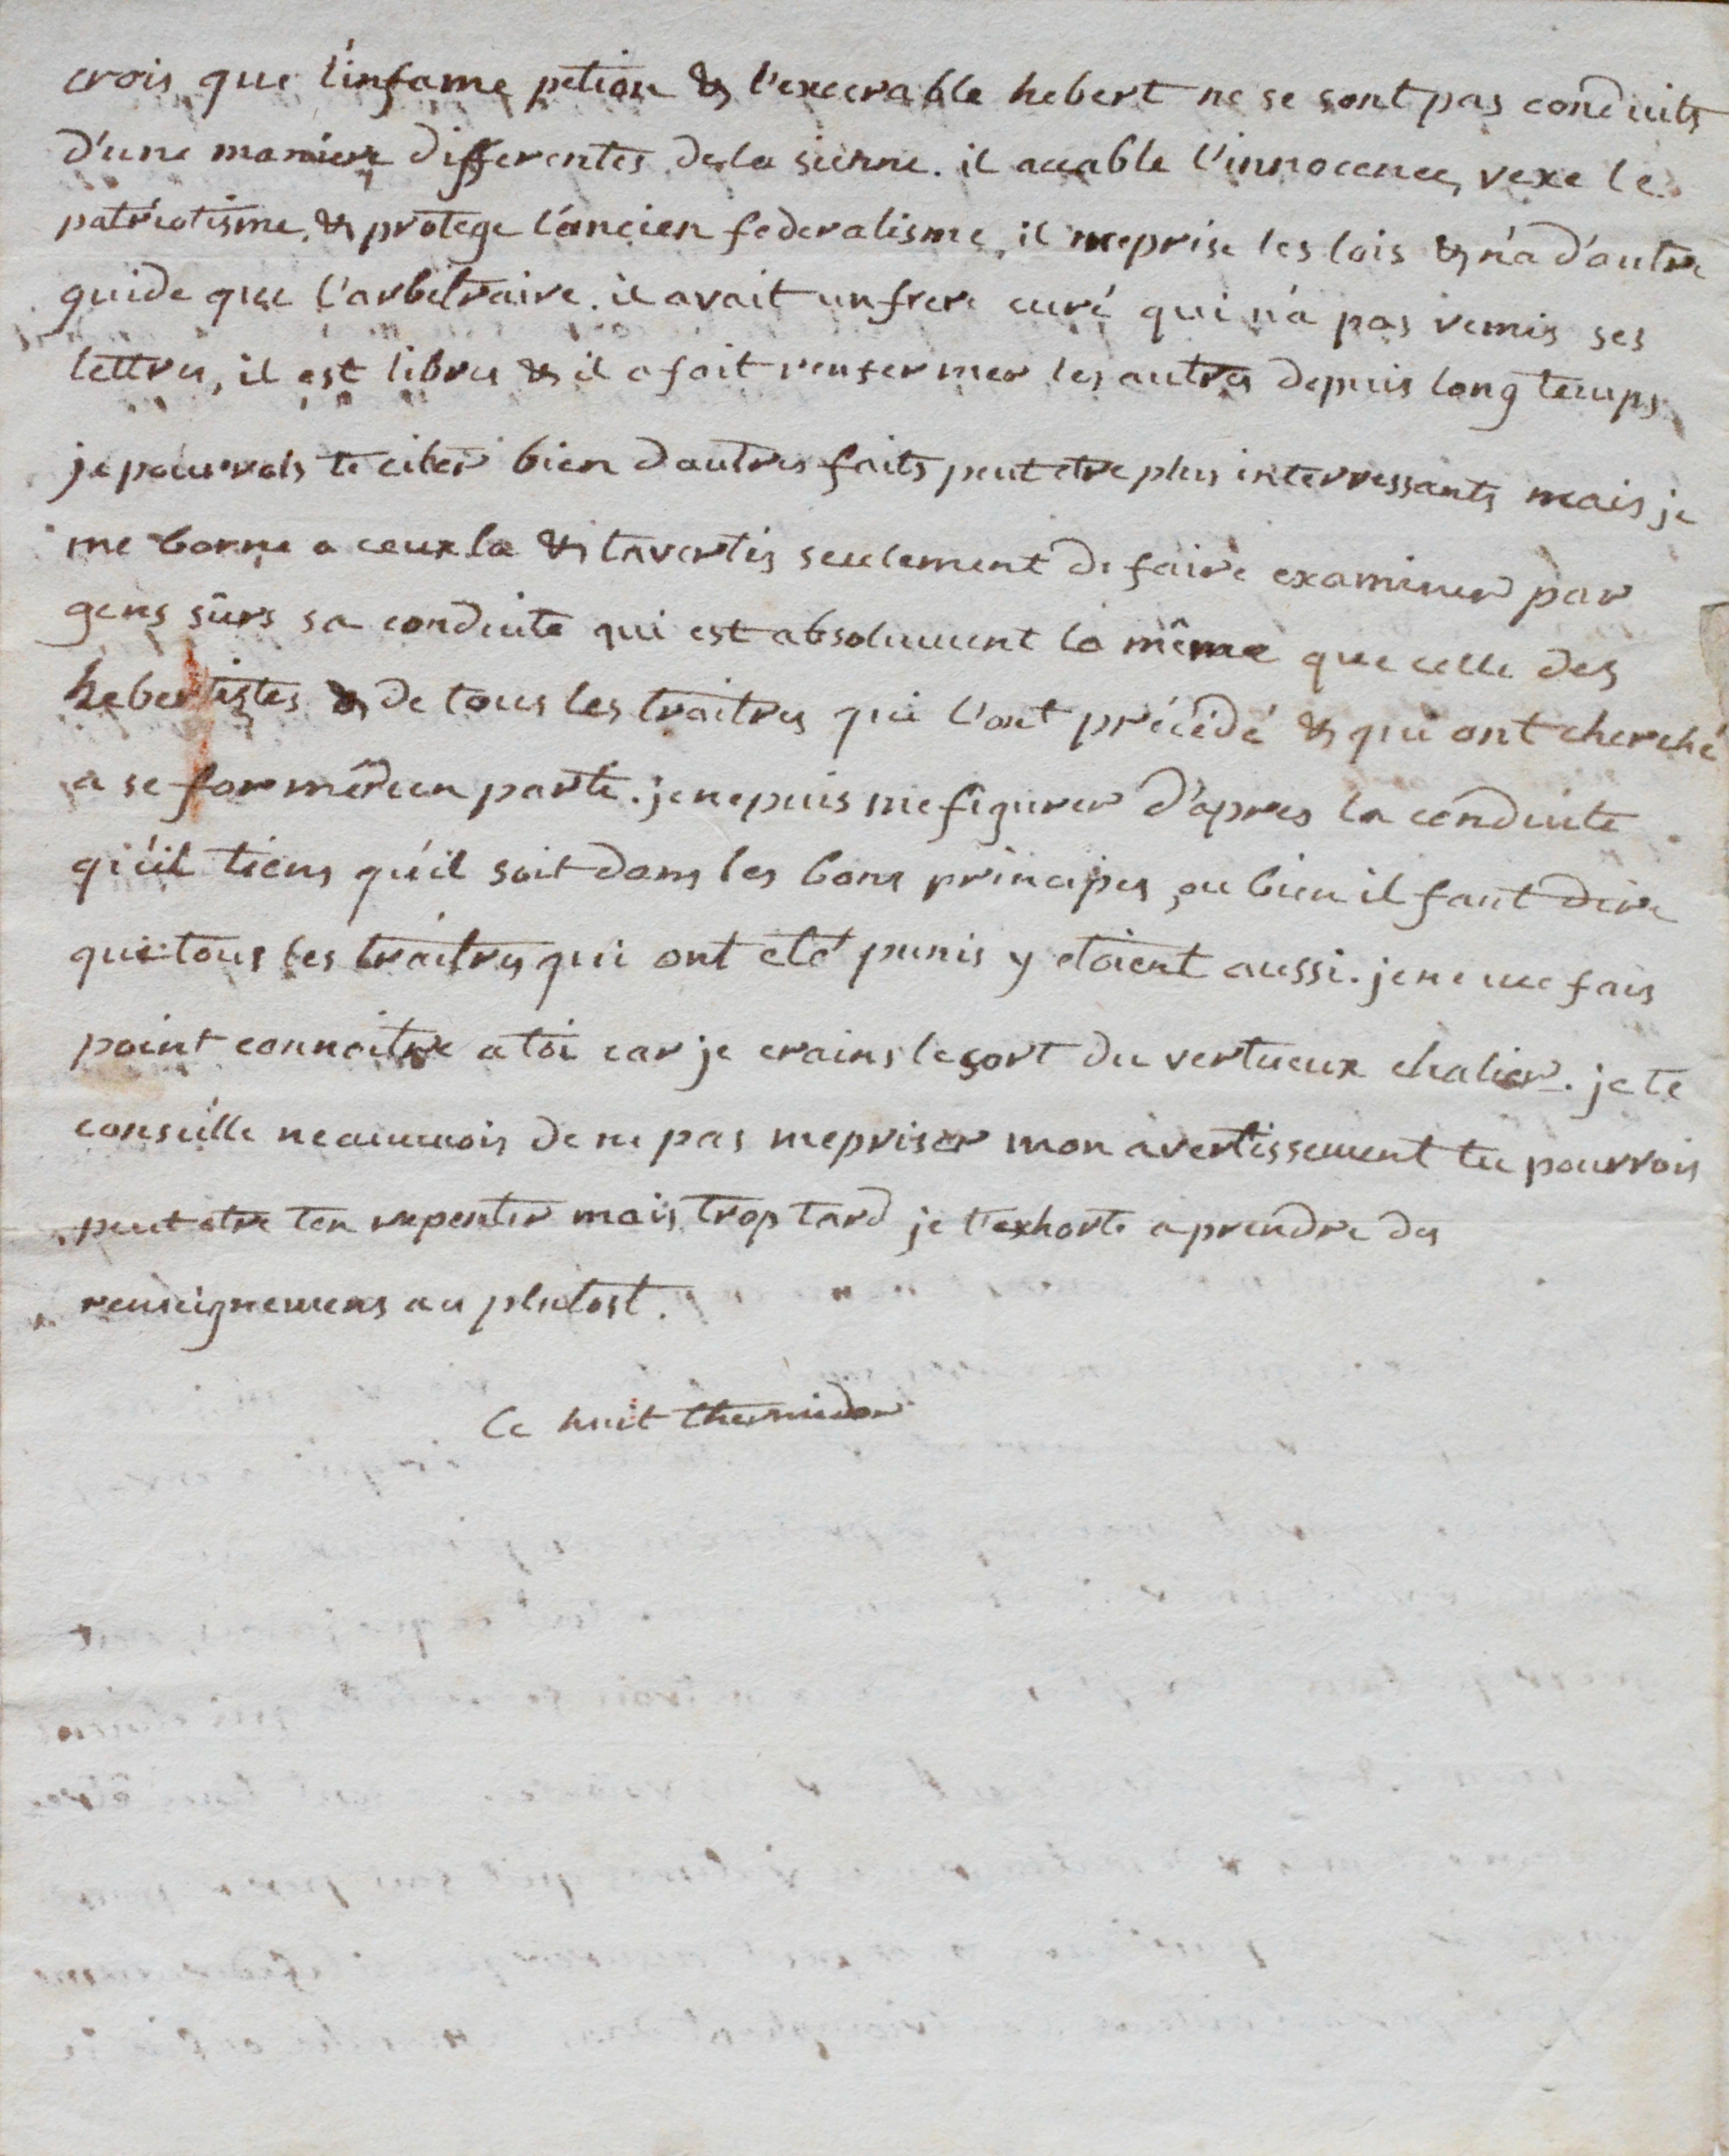 crois que l'infame petion & l'execrable hebert ne se sont pas conduits
d'une maniere differentes de la sienne. il acable l'innocence, vexe le
patriotisme, & protege l'ancien federalisme, il meprise les lois & n'a d'autre
guide que l'arbitraire. il avait un frere curé qui n'a pas remis ses
lettres, il est libres & il a fait renfermer les autres depuis long temps.
je pourrois te citer bien dautres faits peut etre plus interressants mais je
me borne a ceux la & t'avertis seulement de faire examiner par
gens sûrs sa conduite qui est absolument la même que celle des
hebertistes & de tous les traitres qui l'ont précédé & qui ont cherché
a se former un parti. je ne puis me figurer d'apres la conduite
qu'il tiens qu'il soit dans les bons principes, ou bien il faut dire
que tous les traitres qui ont eté punis y etoient aussi. je ne me fais
point connoitre a toi car je crains le sort du vertueux chalier. je te
conseille neaumois de ne pas mepriser mon avertissement tu pourrois
peut etre ten repentir mais trop tard je t'exhorte a prendre des
renseignemens au plutost.
Ce huit thermidor